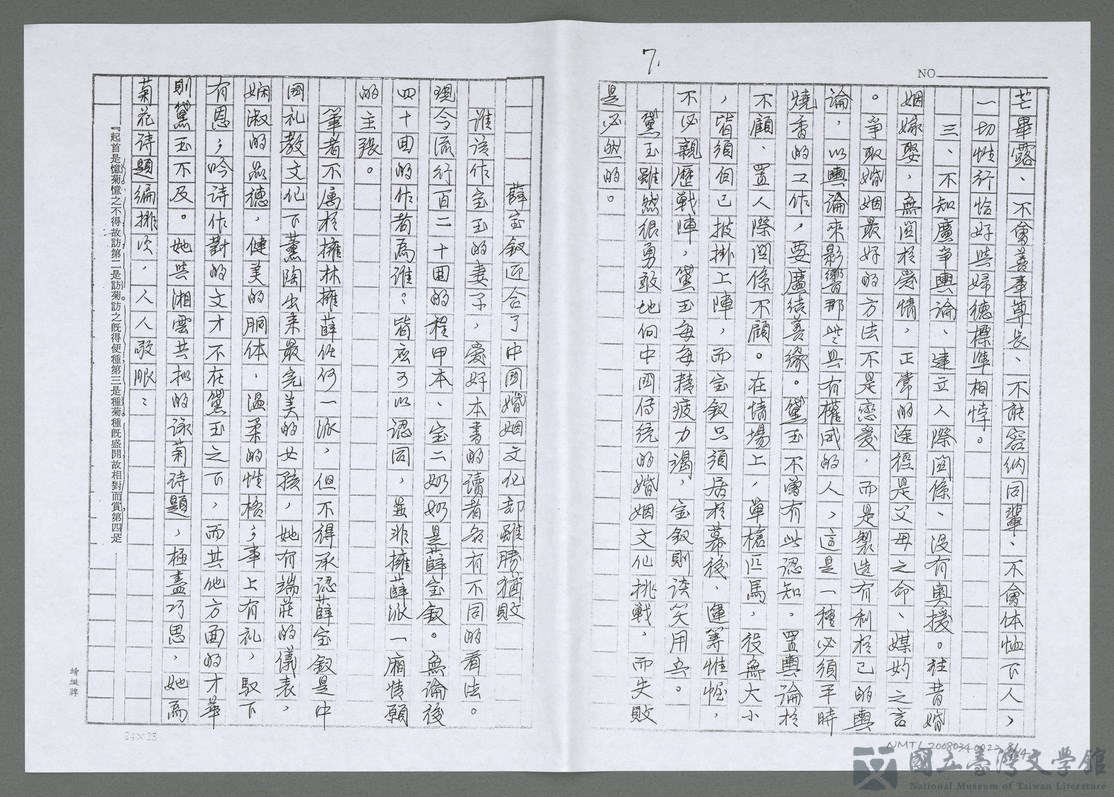 7.
NO.
芒畢露、不會善事尊長、不能容納同輩、不會体恤下人，
一切性行恰好與婦德標準相悖。
三、不知廣爭輿論、建立人際関係、沒有奧援。往昔婚
姻嫁娶，無関於愛情，正常的途徑是父母之命、媒妁之言
。爭取婚姻最好的方法不是恋爱，而是製造有利於己的輿
論，以輿論來影響那些具有權威的人，這是一種必須平時
燒香的工作，要廣結善緣。黛玉不曾有此認知，置輿論於
不顧、置人際関係不顧。在情場上，單槍匹馬，役無大小
，皆須自己披掛上陣，而宝釵只須居於幕後、運籌帷幄，
不必親歷戰陣，黛玉每每精疲力竭，宝釵則談笑用兵。
黛玉雖然很勇敢地向中国傳統的婚姻文化挑戰，而失敗
是必然的。
薛宝釵迎合了中国婚姻文化却雖勝猶敗
誰該作宝玉的妻子，爱好本書的讀者各有不同的看法。
現今流行百二十回的程甲本、宝二奶奶是薛宝釵。無論後
四十回的作者為誰？皆應可以認同，並非擁薛派一廂情願
的主張。
筆者不属於擁林擁薛任何一派，但不得承認薛宝釵是中
国礼教文化下薰陶出來最完美的女孩，她有端莊的儀表，
嫻淑的品德，健美的胴体，溫柔的性格；事上有礼，馭下
有恩；吟詩作對的文才不在黛玉之下，而其他方面的才華
則黛玉不及。她與湘雲共拟的詠菊詩題，極盡巧思，她為
菊花詩題編排次，人人敬服：
『起首是憶菊憶之不得故訪第二是訪菊訪之既得便種第三是種菊種既盛開故相對而賞第四是
24×25
NMTL20080340022
國立臺灣文學館
National Museum of Taiwan Literature